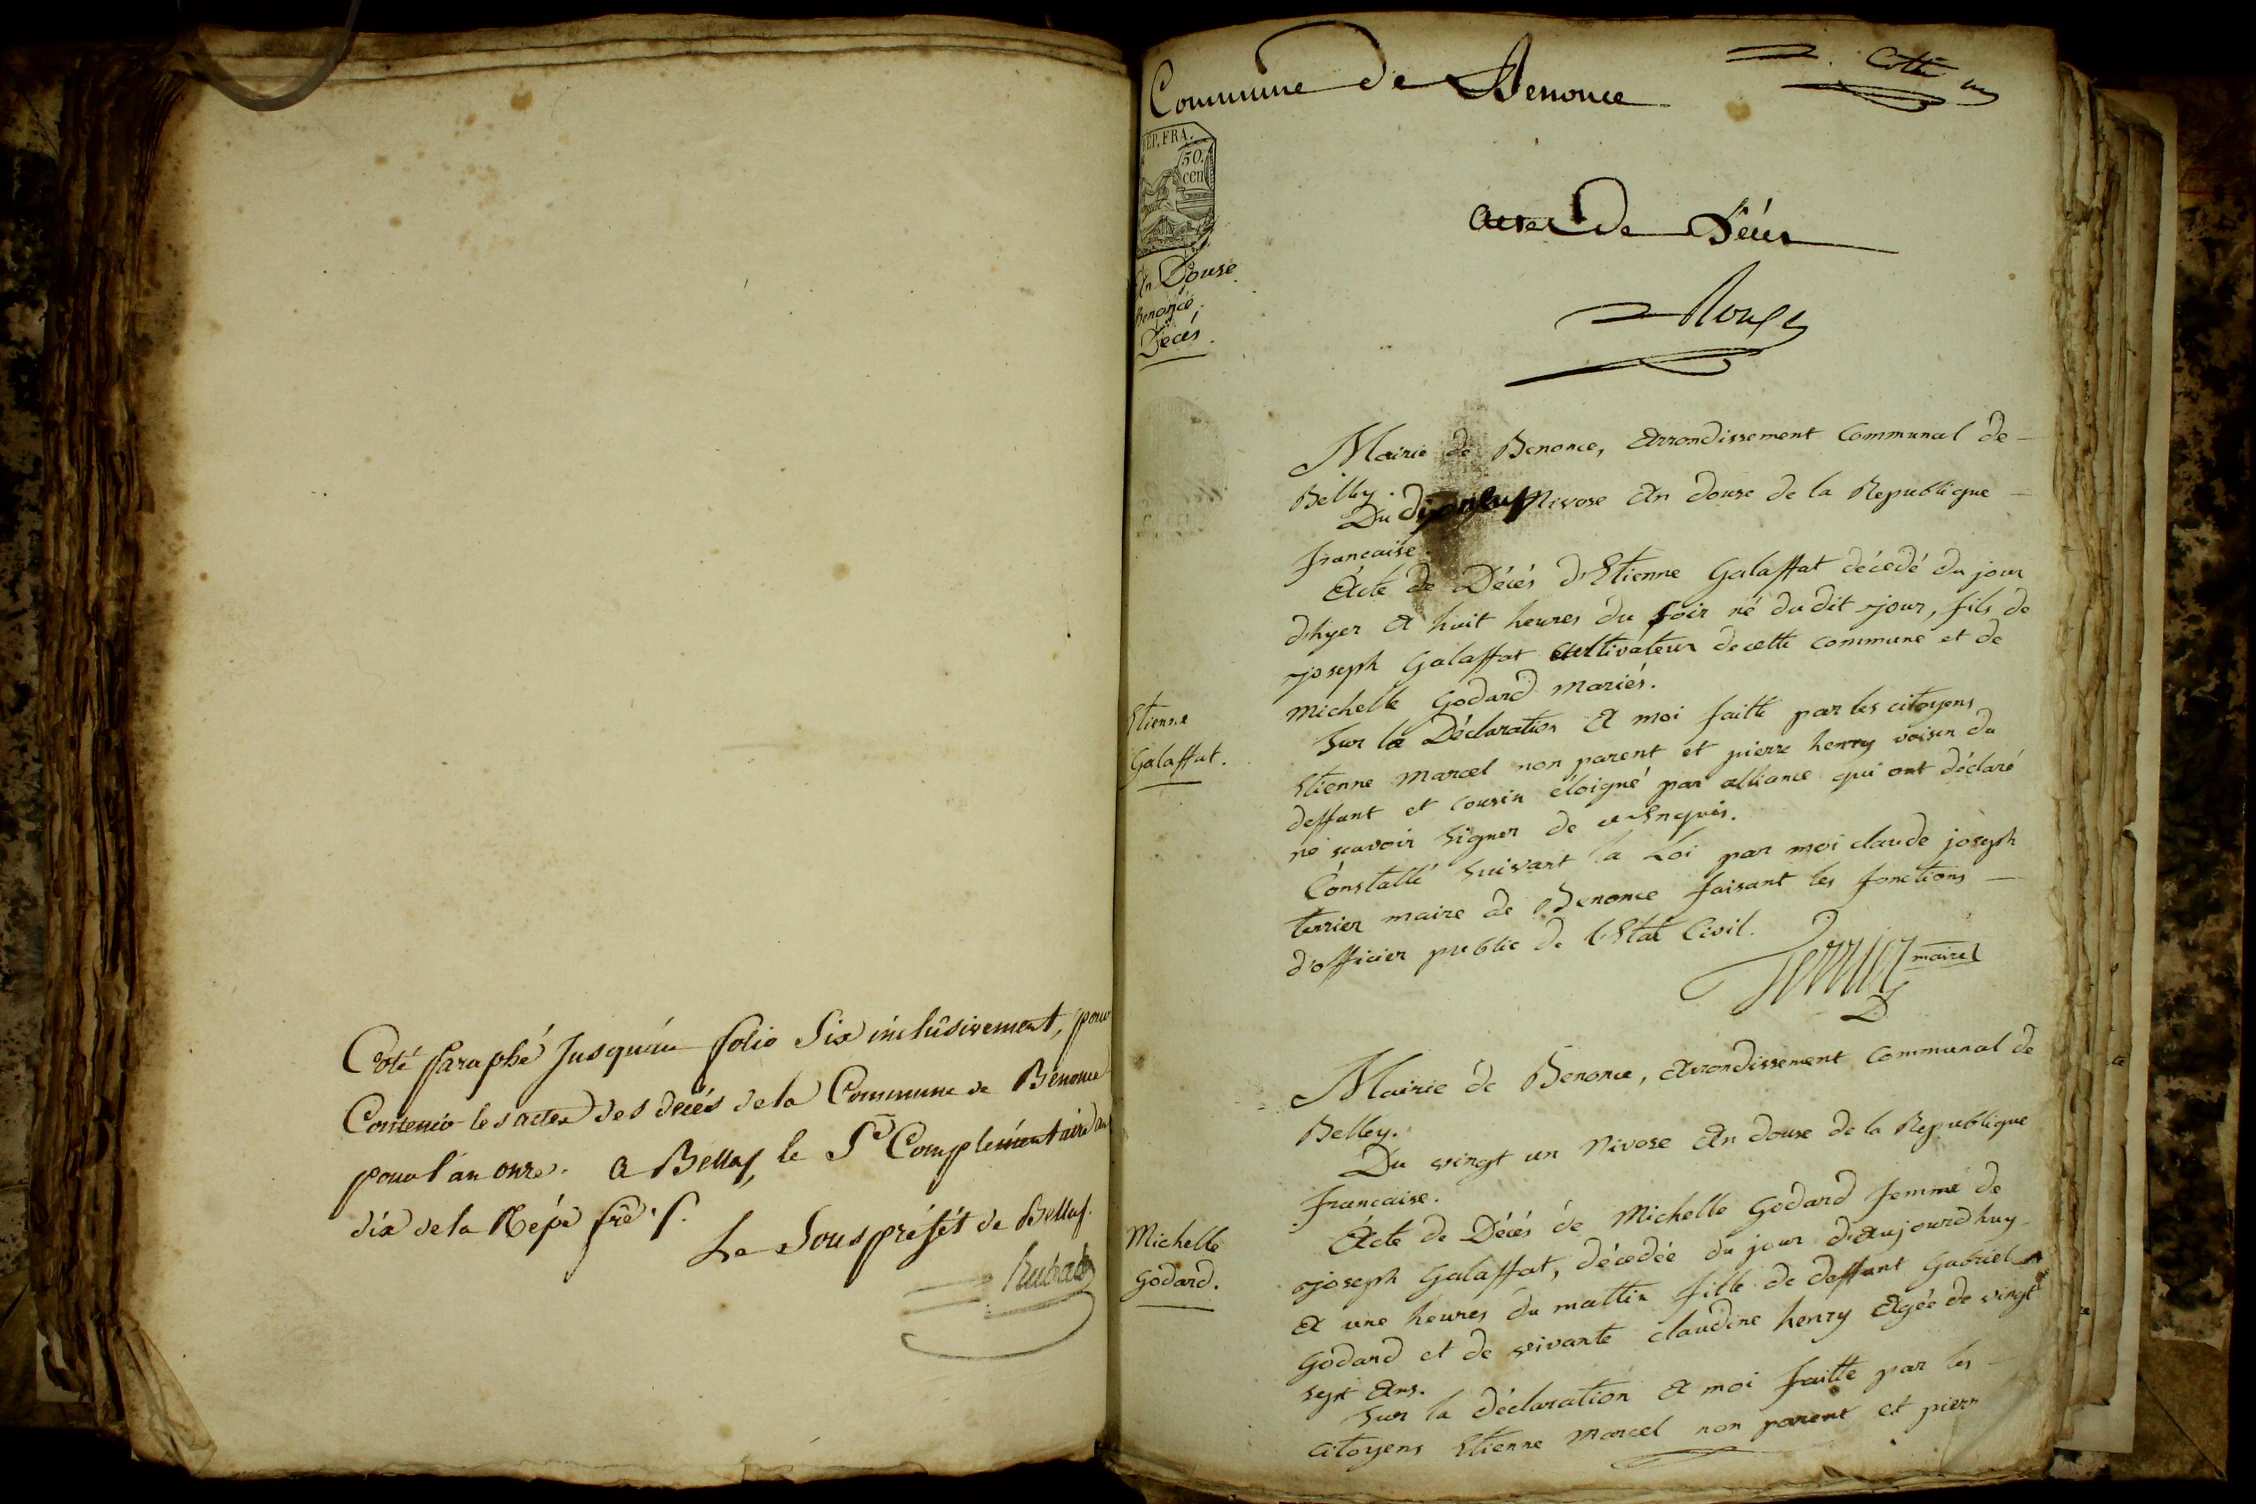 Coté Paraphé Jusqu'au folio Six inclusivement, pour
Contenir les actes des decés de la Commune de Bénonce
pour l'an onze. a Belley, le 5e Complémentaire an
dix de la Répe frse.
Le Sous préfét de Belley.
Rubat
Commune de Benonce
Cotté un
REP. FRA.
50.
cen
An Douse.
Benonce.
Décés.
actes de Décés
Mairie de Benonce, Arrondissement Communal de
Belley.
Du dix neuf Nivose An douse de la Republique
française.
Acte de Décés d'Etienne Galaffat décédé du jour
d'hyer A huit heures du soir né du dit jour, fils de
joseph Galaffat cultivateur de cette commune et de
michelle Godard mariés.
Etienne
Galaffat.
Sur la Déclaration A moi faitte par les citoyens
Etienne marcel non parent et pierre henry voisin du
deffunt et cousin éloigné par alliance qui ont déclaré
ne scavoir signer de ce Enquis.
Constatté suivant la Loi par moi claude joseph
terrier maire de Benonce faisant les fonctions
d'officier public de l'Etat Civil.
Terrier maire
Mairie de Benonce, Arrondissement Communal de
Belley.
Du vingt un Nivose An douse de la Republique
francaise.
Michelle
Godard.
Acte de Décés de Michelle Godard femme de
joseph Galaffat, décedée du jour d'Aujourdhuy
A une heures du mattin fille de deffunt Gabriel
Godard et de vivante claudine henry Agée de vingt
sept Ans.
Sur la déclaration A moi faitte par les
citoyens Etienne marcel non parent et pierre